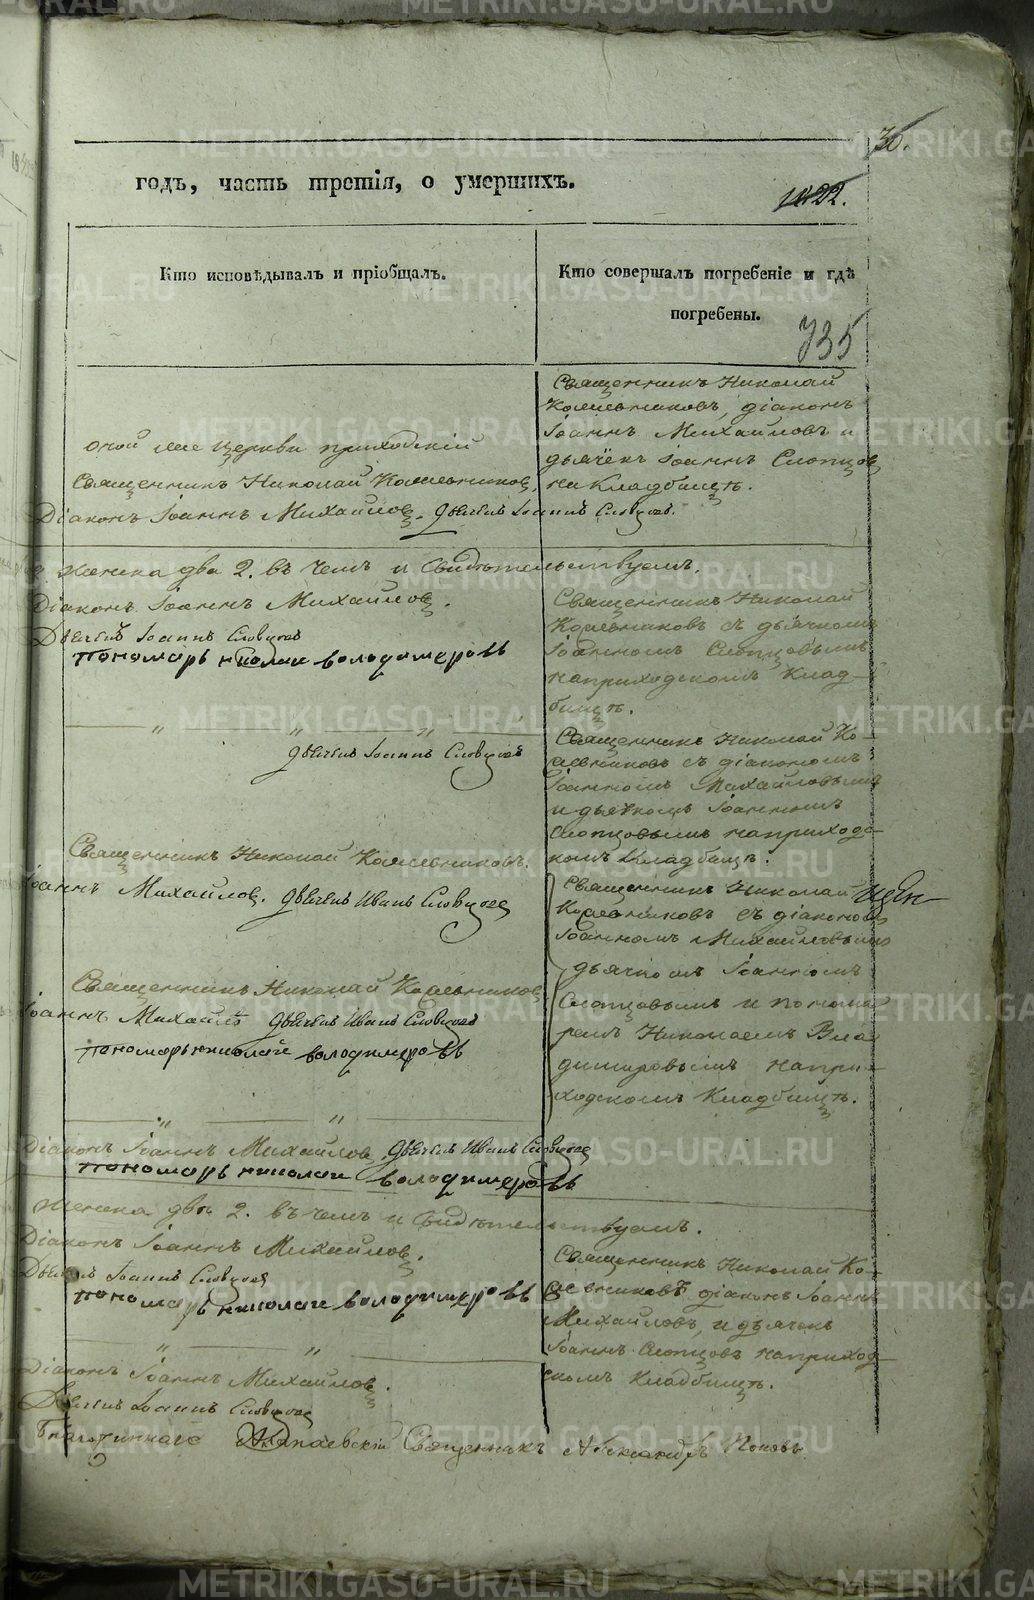 METRIKI.GASO-URAL.RU
30.
годъ, часть третія, о умершихъ.
1122.
Кто исповѣдывалъ и пріобщалъ.
Кто совершалъ погребеніе и гдѣ
погребены.
735
Священникъ Николай
діаконъ
Іоаннъ Михайловъ и
дьячекъ Іоаннъ Словцов
на Кладбищѣ.
оной же церкви приходскій
Священникъ Николай
Діаконъ Іоаннъ Михайлов. Дьячекъ Іоаннъ Словцовъ.
женска два 2. въ чемъ и свидѣтельствуемъ.
Діаконъ Іоаннъ Михайлов.
Дьячекъ Іоаннъ Словцовъ
Пономарь николаи володимеровъ
Священникъ Николай
съ дьячкомъ
Іоанномъ Словцовымъ
на приходскомъ Клад-
бищѣ.
Дьячекъ Іоаннъ Словцовъ
Священникъ Николай Ко-
съ діакономъ
Іоанномъ Михайловымъ
и дьячкомъ Іоанномъ
Словцовымъ на приходс-
комъ Кладбищѣ.
Священникъ Николай
Іоаннъ Михайлов. Дьячекъ Иванъ Словцовъ
Священникъ Николай
съ діакономъ
Іоанномъ Михайловымъ
дьячкомъ Іоанномъ
Словцовымъ и понома-
ремъ Николаемъ Вла-
димировымъ на при-
ходскомъ Кладбищѣ.
Священникъ Николай
Іоаннъ Дьячекъ Иванъ Словцовъ
пономарь николаи володимеровъ
Діаконъ Іоаннъ Михайлов. Дьячекъ Иванъ Словцовъ
Пономарь николаи володимеровъ
женска два 2. въ чемъ и свидѣтельствуемъ.
Діаконъ Іоаннъ Михайлов.
Дьячекъ Іоаннъ Словцовъ
пономарь николаи володимеровъ
Священникъ Николай Ко-
діаконъ Іоаннъ
Михайловъ, и дьячекъ
Іоаннъ Словцовъ на приход-
скомъ Кладбищѣ.
Діаконъ Іоаннъ Михайлов.
Дьячекъ Іоаннъ Словцовъ
Священникъ Александръ Поповъ